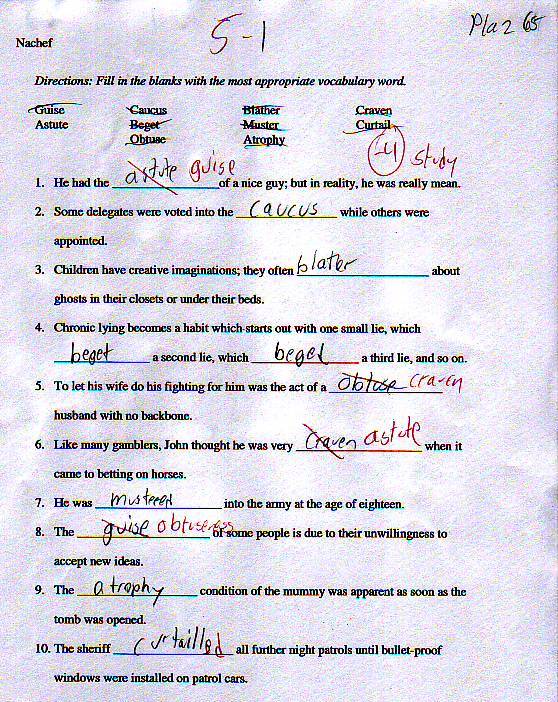 5-1
Pla 2 65
Nachef
Directions: Fill in the blanks with the most appropriate vocabulary word.
Guise Caucus Blather Craven
Astute Beget Muster Curtail
Obtuse Atrophy
-4 study
1. He had the astute guise of a nice guy; but in reality, he was really mean.
2. Some delegates were voted into the caucus while others were
appointed.
3. Children have creative imaginations; they often blater about
ghosts in their closets or under their beds.
4. Chronic lying becomes a habit which starts out with one small lie, which
beget a second lie, which beget a third lie, and so on.
5. To let his wife do his fighting for him was the act of a obtuse craven
husband with no backbone.
6. Like many gamblers, John thought he was very craven astute when it
came to betting on horses.
7. He was mustered into the army at the age of eighteen.
8. The guise obtuseness of some people is due to their unwillingness to
accept new ideas.
9. The atrophy condition of the mummy was apparent as soon as the
tomb was opened.
10. The sheriff curtailled all further night patrols until bullet-proof
windows were installed on patrol cars.